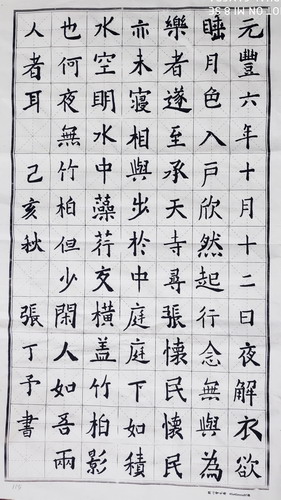 元豐六年十月十二日夜解衣欲
睡月色入戶欣然起行念無與為
樂者遂至承天寺尋張懷民懷民
亦未寢相與出於中庭庭下如積
水空明水中藻荇交橫蓋竹柏影
也何夜無竹柏但少閑人如吾兩
人者耳 己亥秋 張丁予書